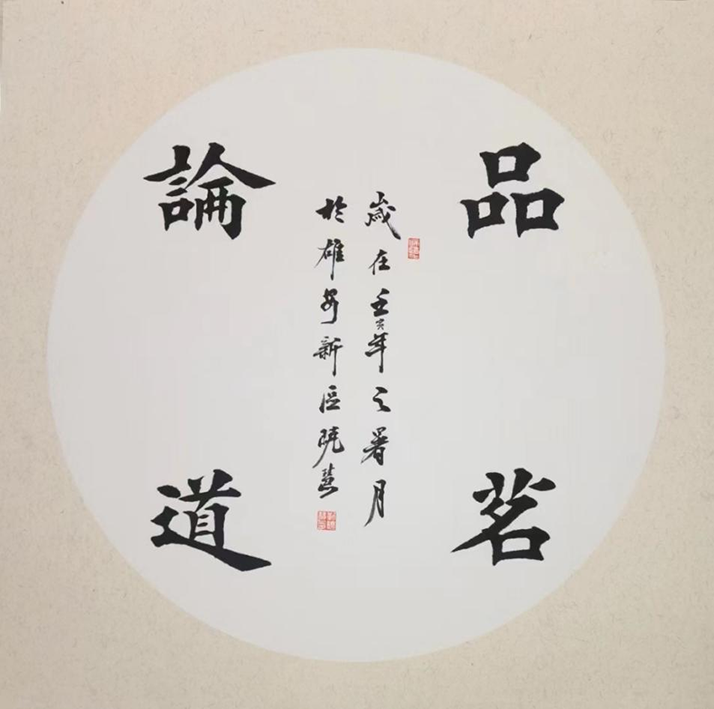 品茗
論道
歲在壬寅年之暑月
於雄安新区慧